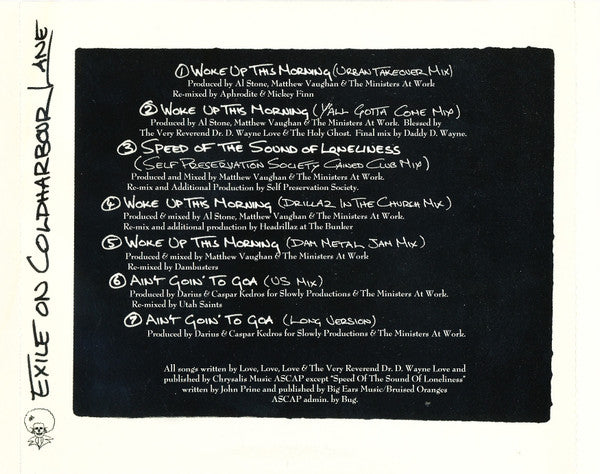 EXILE ON COLDHARBOUR LANE
① WOKE UP THIS MORNING (URBAN TAKEOVER MIX)
Produced by Al Stone, Matthew Vaughan & The Ministers At Work
Re-mixed by Aphrodite & Mickey Finn
② WOKE UP THIS MORNING (Y'ALL GOTTA COME MIX)
Produced by Al Stone, Matthew Vaughan & The Ministers At Work. Blessed by
The Very Reverend Dr. D. Wayne Love & The Holy Ghost. Final mix by Daddy D. Wayne.
③ SPEED OF THE SOUND OF LONELINESS
(SELF PRESERVATION SOCIETY CAINED CLUB MIX)
Produced and Mixed by Matthew Vaughan & The Ministers At Work.
Re-mix and Additional Production by Self Preservation Society.
④ WOKE UP THIS MORNING (DRILLAZ IN THE CHURCH MIX)
Produced & mixed by Al Stone, Matthew Vaughan & The Ministers At Work.
Re-mix and additional production by Headrillaz at The Bunker
⑤ WOKE UP THIS MORNING (DAM METAL JAM MIX)
Produced & mixed by Matthew Vaughan & The Ministers At Work
Re-mixed by Dambusters
⑥ AIN'T GOIN' TO GOA (US MIX)
Produced by Darius & Caspar Kedros for Slowly Productions & The Ministers At Work.
Re-mixed by Utah Saints
⑦ AIN'T GOIN' TO GOA (LONG VERSION)
Produced by Darius & Caspar Kedros for Slowly Productions & The Ministers At Work.
All songs written by Love, Love, Love & The Very Reverend Dr. D. Wayne Love and
published by Chrysalis Music ASCAP except "Speed Of The Sound Of Loneliness"
written by John Prine and published by Big Ears Music/Bruised Oranges
ASCAP admin. by Bug.